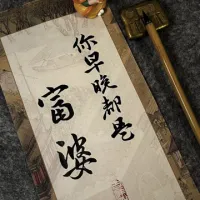 你早晚都是
富婆